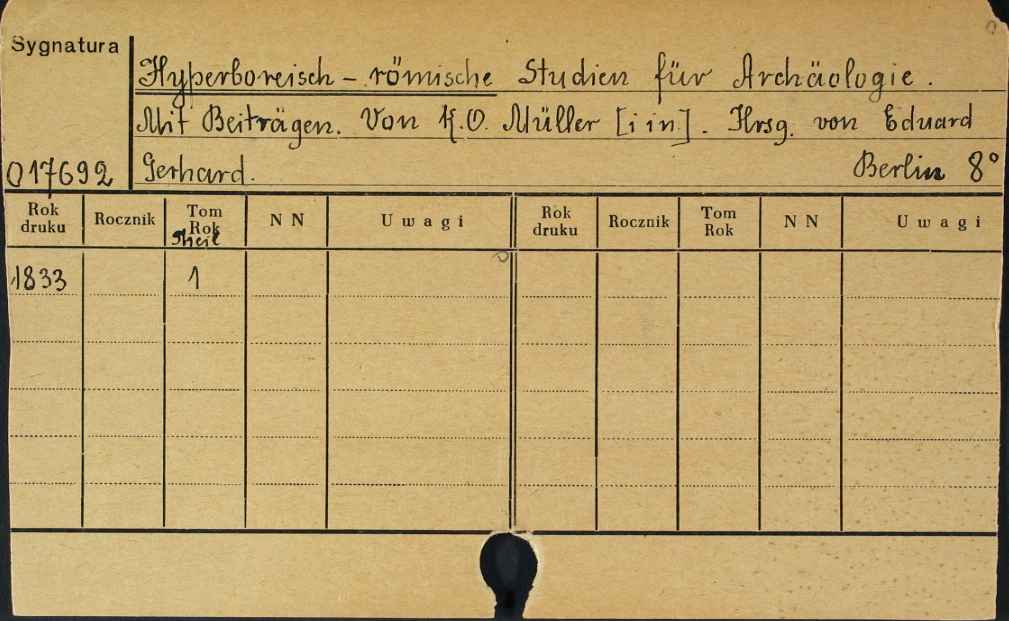 Sygnatura
Hyperboreisch - römische Studien für Archäologie.
Mit Beiträgen. Von K.O. Müller [i in]. Hrsg. von Eduard
017692 Gerhard. Berlin 8°
Rok druku Rocznik Tom Rok Theil N N Uwagi Rok druku Rocznik Tom Rok N N Uwagi
1833 1